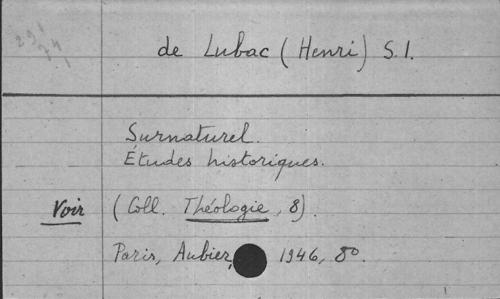 de Lubac (Henri) S.I.
Surnaturel.
Études historiques.
Voir (Coll. Théologie, 8).
Paris, Aubier, 1946, 8°.